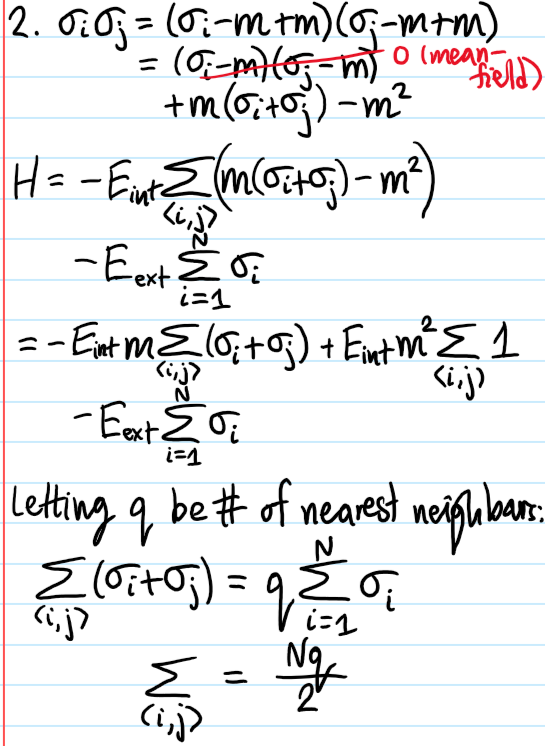 2. σᵢσⱼ = (σᵢ-m+m)(σⱼ-m+m)
= (σᵢ-m)(σⱼ-m) 0 (mean-field)
+m(σᵢ+σⱼ) - m²
H = -E_int Σ_<i,j> (m(σᵢ+σⱼ) - m²)
-E_ext Σ_{i=1}^N σᵢ
= -E_int m Σ_<i,j> (σᵢ+σⱼ) + E_int m² Σ_<i,j> 1
-E_ext Σ_{i=1}^N σᵢ
Letting q be # of nearest neighbors:
Σ_<i,j> (σᵢ+σⱼ) = q Σ_{i=1}^N σᵢ
Σ_<i,j> = Nq/2